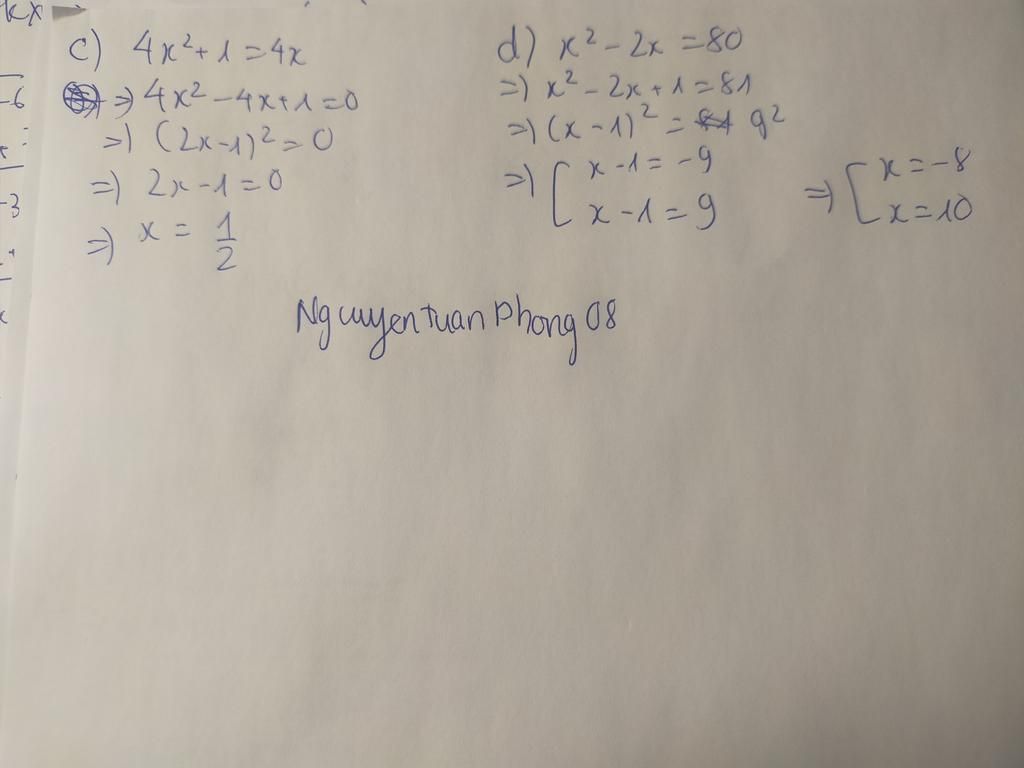 kx
-6
-3
c) 4x² + 1 = 4x
=) 4x² - 4x + 1 = 0
=) (2x - 1)² = 0
=) 2x - 1 = 0
=) x = 1/2
d) x² - 2x = 80
=) x² - 2x + 1 = 81
=) (x - 1)² = 9²
=) [ x - 1 = -9 =) [ x = -8
x - 1 = 9 x = 10
Nguyen tuan Phong 08